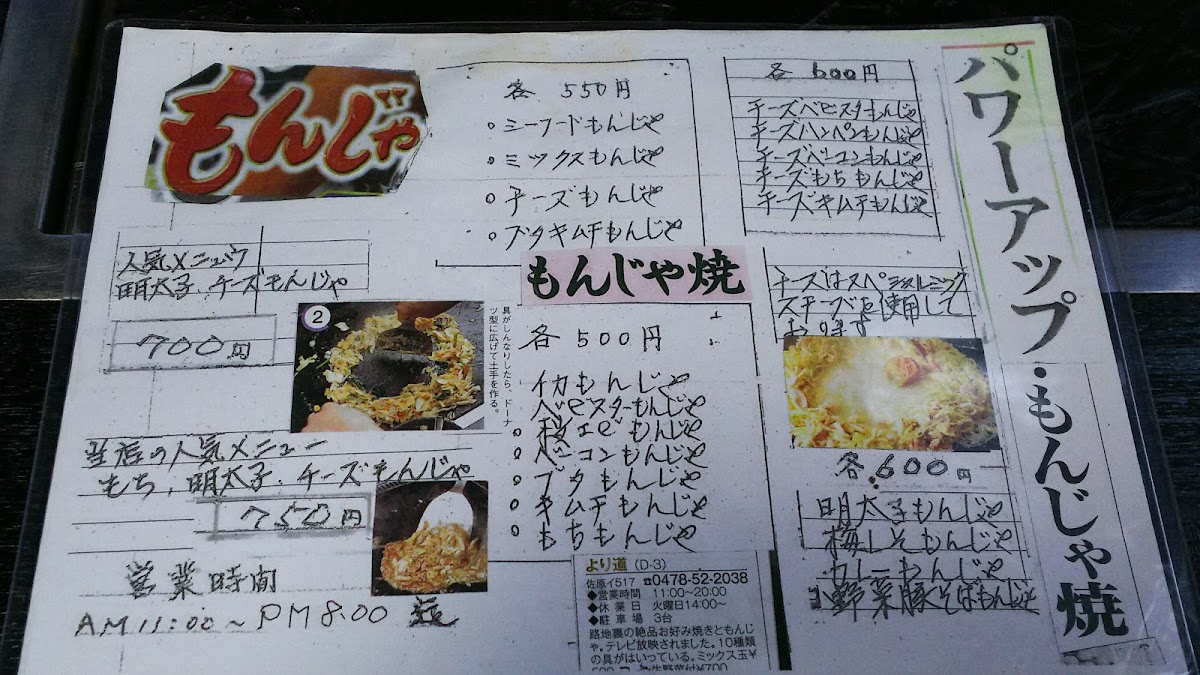 パワーアップ・もんじゃ焼
もんじゃ
各 550円
シーフードもんじゃ
ミックスもんじゃ
チーズもんじゃ
ブタキムチもんじゃ
各 600円
チーズベビスタもんじゃ
チーズハンペンもんじゃ
チーズベーコンもんじゃ
チーズもちもんじゃ
チーズキムチもんじゃ
人気メニュウ
明太子、チーズもんじゃ
700円
2
具がしんなりしたら、ドーナ
ツ型に広げて土手を作る。
もんじゃ焼
各 500円
イカもんじゃ
ベビスターもんじゃ
桜エビもんじゃ
ベーコンもんじゃ
ブタもんじゃ
キムチもんじゃ
もちもんじゃ
使用して
おります
各 600円
明太子もんじゃ
梅しそもんじゃ
カレーもんじゃ
野菜豚そばもんじゃ
当店の人気メニュー
もち、明太子、チーズもんじゃ
750円
営業時間
AM11:00～PM8.00
より道 (D-3)
佐原イ517 ☎0478-52-2038
◆営業時間 11:00～20:00
◆休業日 火曜日14:00～
◆駐車場 3台
路地裏の絶品お好み焼きともんじ
ゃ。テレビ放映されました。10種類
の具がはいっている。ミックス玉¥